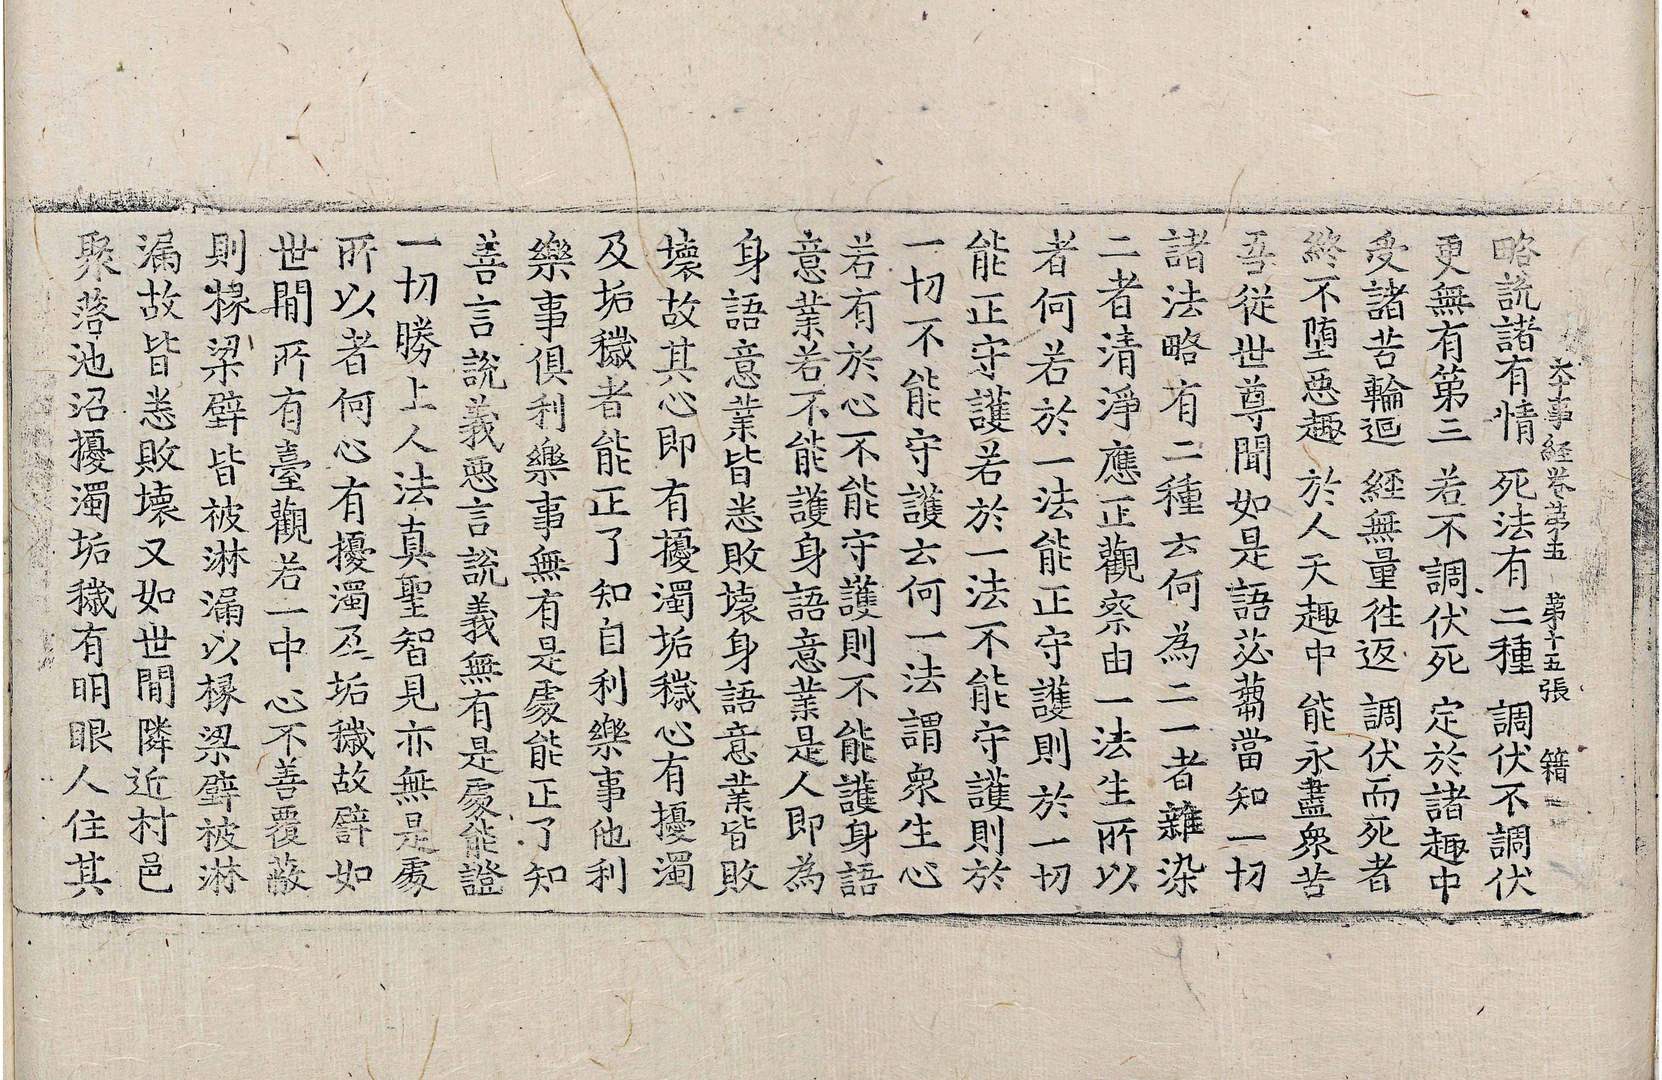 本事經卷第五 第十五張 籍
略説諸有情 死法有二種 調伏不調伏
更無有第三 若不調伏死 定於諸趣中
受諸苦輪迴 經無量往返 調伏而死者
終不墮惡趣 於人天趣中 能永盡衆苦
吾從世尊聞如是語苾蒭當知一切
諸法略有二種云何為二一者雜染
二者清淨應正觀察由一法生所以
者何若於一法能正守護則於一切
能正守護若於一法不能守護則於
一切不能守護云何一法謂衆生心
若有於心不能守護則不能護身語
意業若不能護身語意業是人即為
身語意業皆悉敗壞身語意業皆敗
壞故其心即有擾濁垢穢心有擾濁
及垢穢者能正了知自利樂事他利
樂事俱利樂事無有是處能正了知
善言說義惡言說義無有是處能證
一切勝上人法真聖智見亦無是處
所以者何心有擾濁及垢穢故譬如
世閒所有臺觀若一中心不善覆蔽
則椽梁壁皆被淋漏以椽梁壁被淋
漏故皆悉敗壞又如世閒隣近村邑
聚落池沼擾濁垢穢有明眼人住其